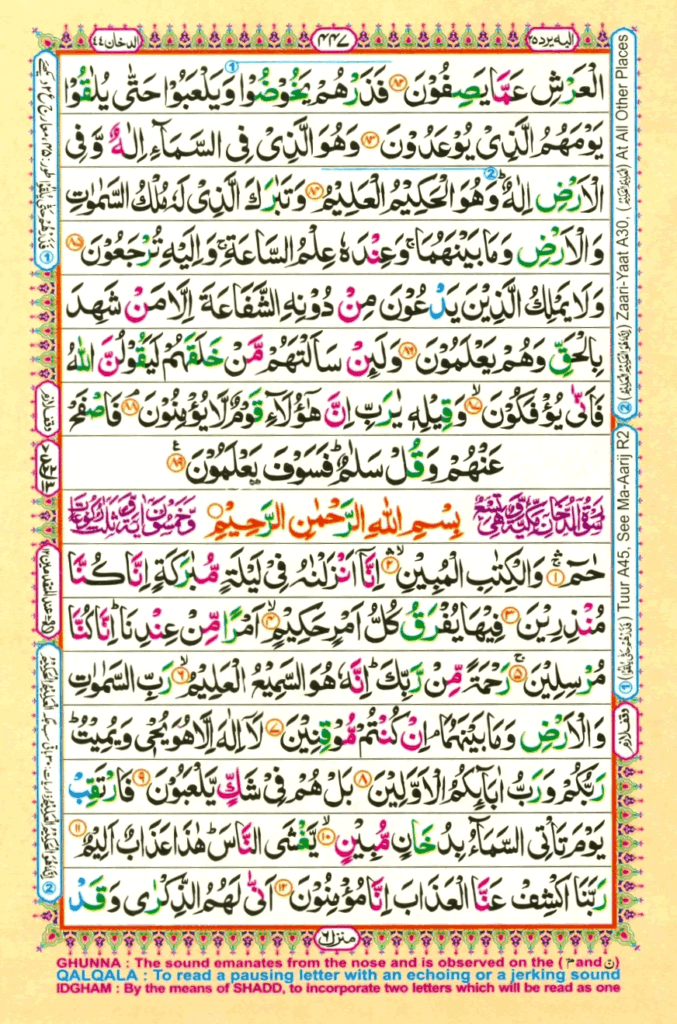 اليه يرد ٢٥
٤٤٧
الدخان ٤٤
الْعَرْشِ عَمَّا يَصِفُوْنَ ۝٨٢ فَذَرْهُمْ يَخُوْضُوْا وَيَلْعَبُوْا حَتّٰى يُلٰقُوْا
يَوْمَهُمُ الَّذِيْ يُوْعَدُوْنَ ۝٨٣ وَهُوَ الَّذِيْ فِى السَّمَآءِ اِلٰهٌ وَّفِى
الْاَرْضِ اِلٰهٌ ؕ وَهُوَ الْحَكِيْمُ الْعَلِيْمُ ۝٨٤ وَتَبٰرَكَ الَّذِيْ لَهٗ مُلْكُ السَّمٰوٰتِ
وَالْاَرْضِ وَمَا بَيْنَهُمَا ۚ وَعِنْدَهٗ عِلْمُ السَّاعَةِ ۚ وَاِلَيْهِ تُرْجَعُوْنَ ۝٨٥
وَلَا يَمْلِكُ الَّذِيْنَ يَدْعُوْنَ مِنْ دُوْنِهِ الشَّفَاعَةَ اِلَّا مَنْ شَهِدَ
بِالْحَقِّ وَهُمْ يَعْلَمُوْنَ ۝٨٦ وَلَئِنْ سَاَلْتَهُمْ مَّنْ خَلَقَهُمْ لَيَقُوْلُنَّ اللّٰهُ
فَاَنّٰى يُؤْفَكُوْنَ ۝٨٧ وَقِيْلِهٖ يٰرَبِّ اِنَّ هٰٓؤُلَآءِ قَوْمٌ لَّا يُؤْمِنُوْنَ ۝٨٨ فَاصْفَحْ
عَنْهُمْ وَقُلْ سَلٰمٌ ؕ فَسَوْفَ يَعْلَمُوْنَ ۝٨٩
بِسْمِ اللّٰهِ الرَّحْمٰنِ الرَّحِيْمِ
حٰمٓ ۝١ وَالْكِتٰبِ الْمُبِيْنِ ۝٢ اِنَّآ اَنْزَلْنٰهُ فِيْ لَيْلَةٍ مُّبٰرَكَةٍ اِنَّا كُنَّا
مُنْذِرِيْنَ ۝٣ فِيْهَا يُفْرَقُ كُلُّ اَمْرٍ حَكِيْمٍ ۝٤ اَمْرًا مِّنْ عِنْدِنَا ؕ اِنَّا كُنَّا
مُرْسِلِيْنَ ۝٥ رَحْمَةً مِّنْ رَّبِّكَ ؕ اِنَّهٗ هُوَ السَّمِيْعُ الْعَلِيْمُ ۝٦ رَبِّ السَّمٰوٰتِ
وَالْاَرْضِ وَمَا بَيْنَهُمَا ۘ اِنْ كُنْتُمْ مُّوْقِنِيْنَ ۝٧ لَآ اِلٰهَ اِلَّا هُوَ يُحْيٖ وَيُمِيْتُ ؕ
رَبُّكُمْ وَرَبُّ اٰبَآئِكُمُ الْاَوَّلِيْنَ ۝٨ بَلْ هُمْ فِيْ شَكٍّ يَّلْعَبُوْنَ ۝٩ فَارْتَقِبْ
يَوْمَ تَاْتِى السَّمَآءُ بِدُخَانٍ مُّبِيْنٍ ۝١٠ يَّغْشَى النَّاسَ ؕ هٰذَا عَذَابٌ اَلِيْمٌ ۝١١
رَبَّنَا اكْشِفْ عَنَّا الْعَذَابَ اِنَّا مُؤْمِنُوْنَ ۝١٢ اَنّٰى لَهُمُ الذِّكْرٰى وَقَدْ
منزل ٦
① Tuur A45, See Ma-Aarij R2
② Zaari-Yaat A30, At All Other Places
GHUNNA : The sound emanates from the nose and is observed on the ( م and ن)
QALQALA : To read a pausing letter with an echoing or a jerking sound
IDGHAM : By the means of SHADD, to incorporate two letters which will be read as one